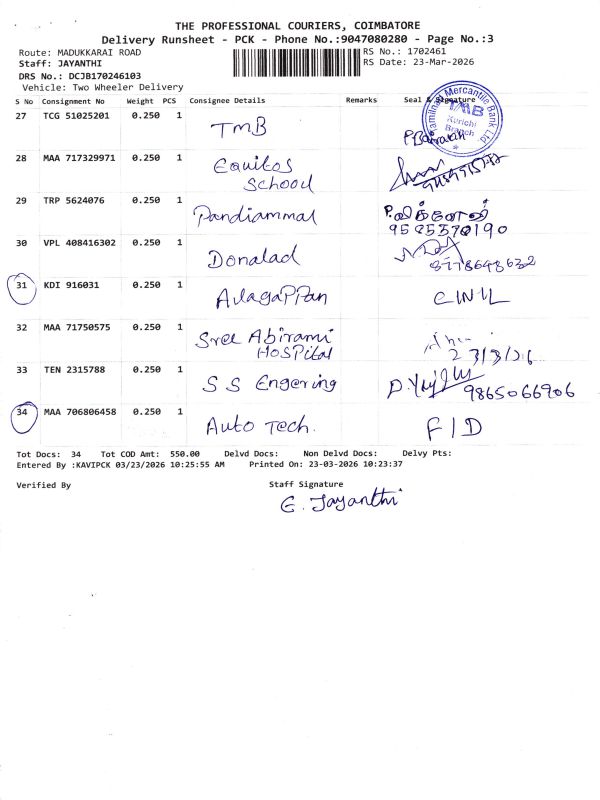 THE PROFESSIONAL COURIERS, COIMBATORE
Delivery Runsheet - PCK - Phone No.:9047080280 - Page No.:3
Route: MADUKKARAI ROAD RS No.: 1702461
Staff: JAYANTHI RS Date: 23-Mar-2026
DRS No.: DCJB170246103
Vehicle: Two Wheeler Delivery
S No Consignment No Weight PCS Consignee Details Remarks Seal & Signature
27 TCG 51025201 0.250 1 TMB
Tamilnad Mercantile Bank Ltd.
TMB
Kurichi
Branch
28 MAA 717329971 0.250 1 Equitos
School
29 TRP 5624076 0.250 1 Pandiammal
9585370190
30 VPL 408416302 0.250 1 Donalad
8778648632
31 KDI 916031 0.250 1 AlagaPPan CNIL
32 MAA 71750575 0.250 1 Sree Abirami
HOSPital 23/3/26
33 TEN 2315788 0.250 1 S S Engering 9865066906
34 MAA 706806458 0.250 1 Auto Tech. F/D
Tot Docs: 34 Tot COD Amt: 550.00 Delvd Docs: Non Delvd Docs: Delvy Pts:
Entered By :KAVIPCK 03/23/2026 10:25:55 AM Printed On: 23-03-2026 10:23:37
Verified By Staff Signature
E. Jayanthi